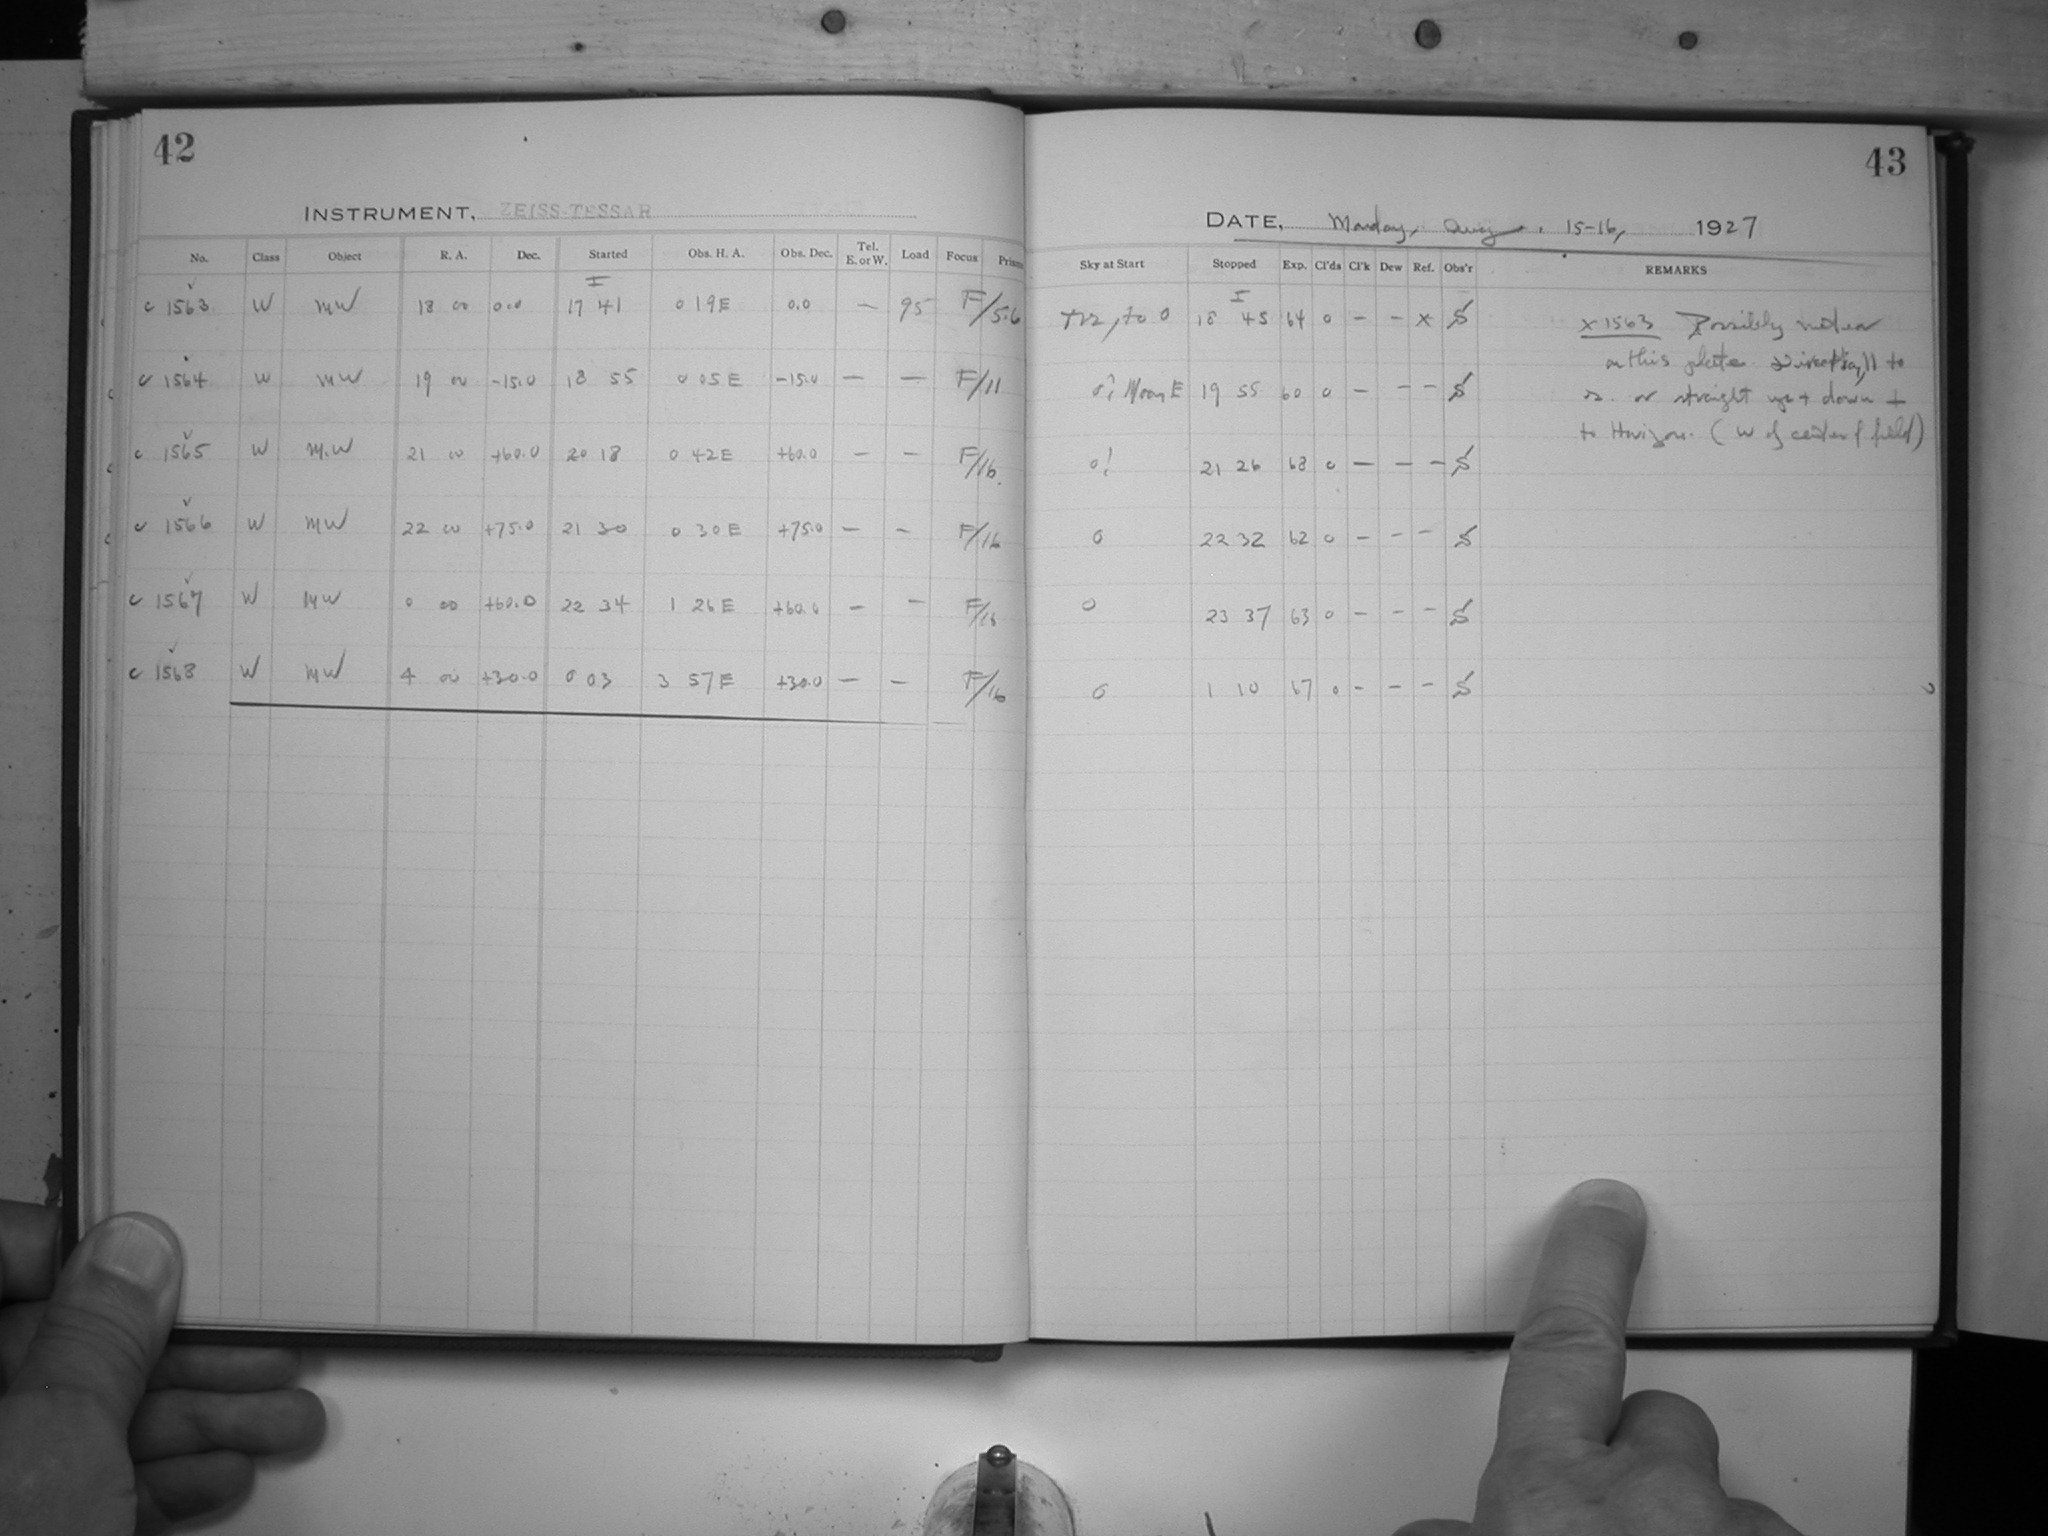 42
INSTRUMENT, ZEISS-TESSAR
No. Class Object R. A. Dec. Started Obs. H. A. Obs. Dec. Tel. E. or W. Load Focus Prism
c 1563 W MW 18 00 0.0 17 41 0 19 E 0.0 — 95 F/5.6
c 1564 W MW 19 00 -15.0 18 55 0 05 E -15.0 — — F/11
c 1565 W M.W 21 00 +60.0 20 18 0 42 E +60.0 — — F/16.
c 1566 W MW 22 00 +75.0 21 30 0 30 E +75.0 — — F/16
c 1567 W MW 0 00 +60.0 22 34 1 26 E +60.0 — — F/16
c 1568 W MW 4 00 +30.0 0 03 3 57 E +30.0 — — F/16
43
DATE, Monday, Aug. 15-16, 1927
Sky at Start Stopped Exp. Cl'ds Cl'k Dew Ref. Obs'r REMARKS
to 0 18 45 64 0 — — x S
0? Moon E 19 55 60 0 — — — S
0? 21 26 68 0 — — — S
0 22 32 62 0 — — — S
0 23 37 63 0 — — — S
0 1 10 67 0 — — — S
x 1563 Possibly meteor
on this plate. to
or straight up + down
to Horizon. (W of center of field)